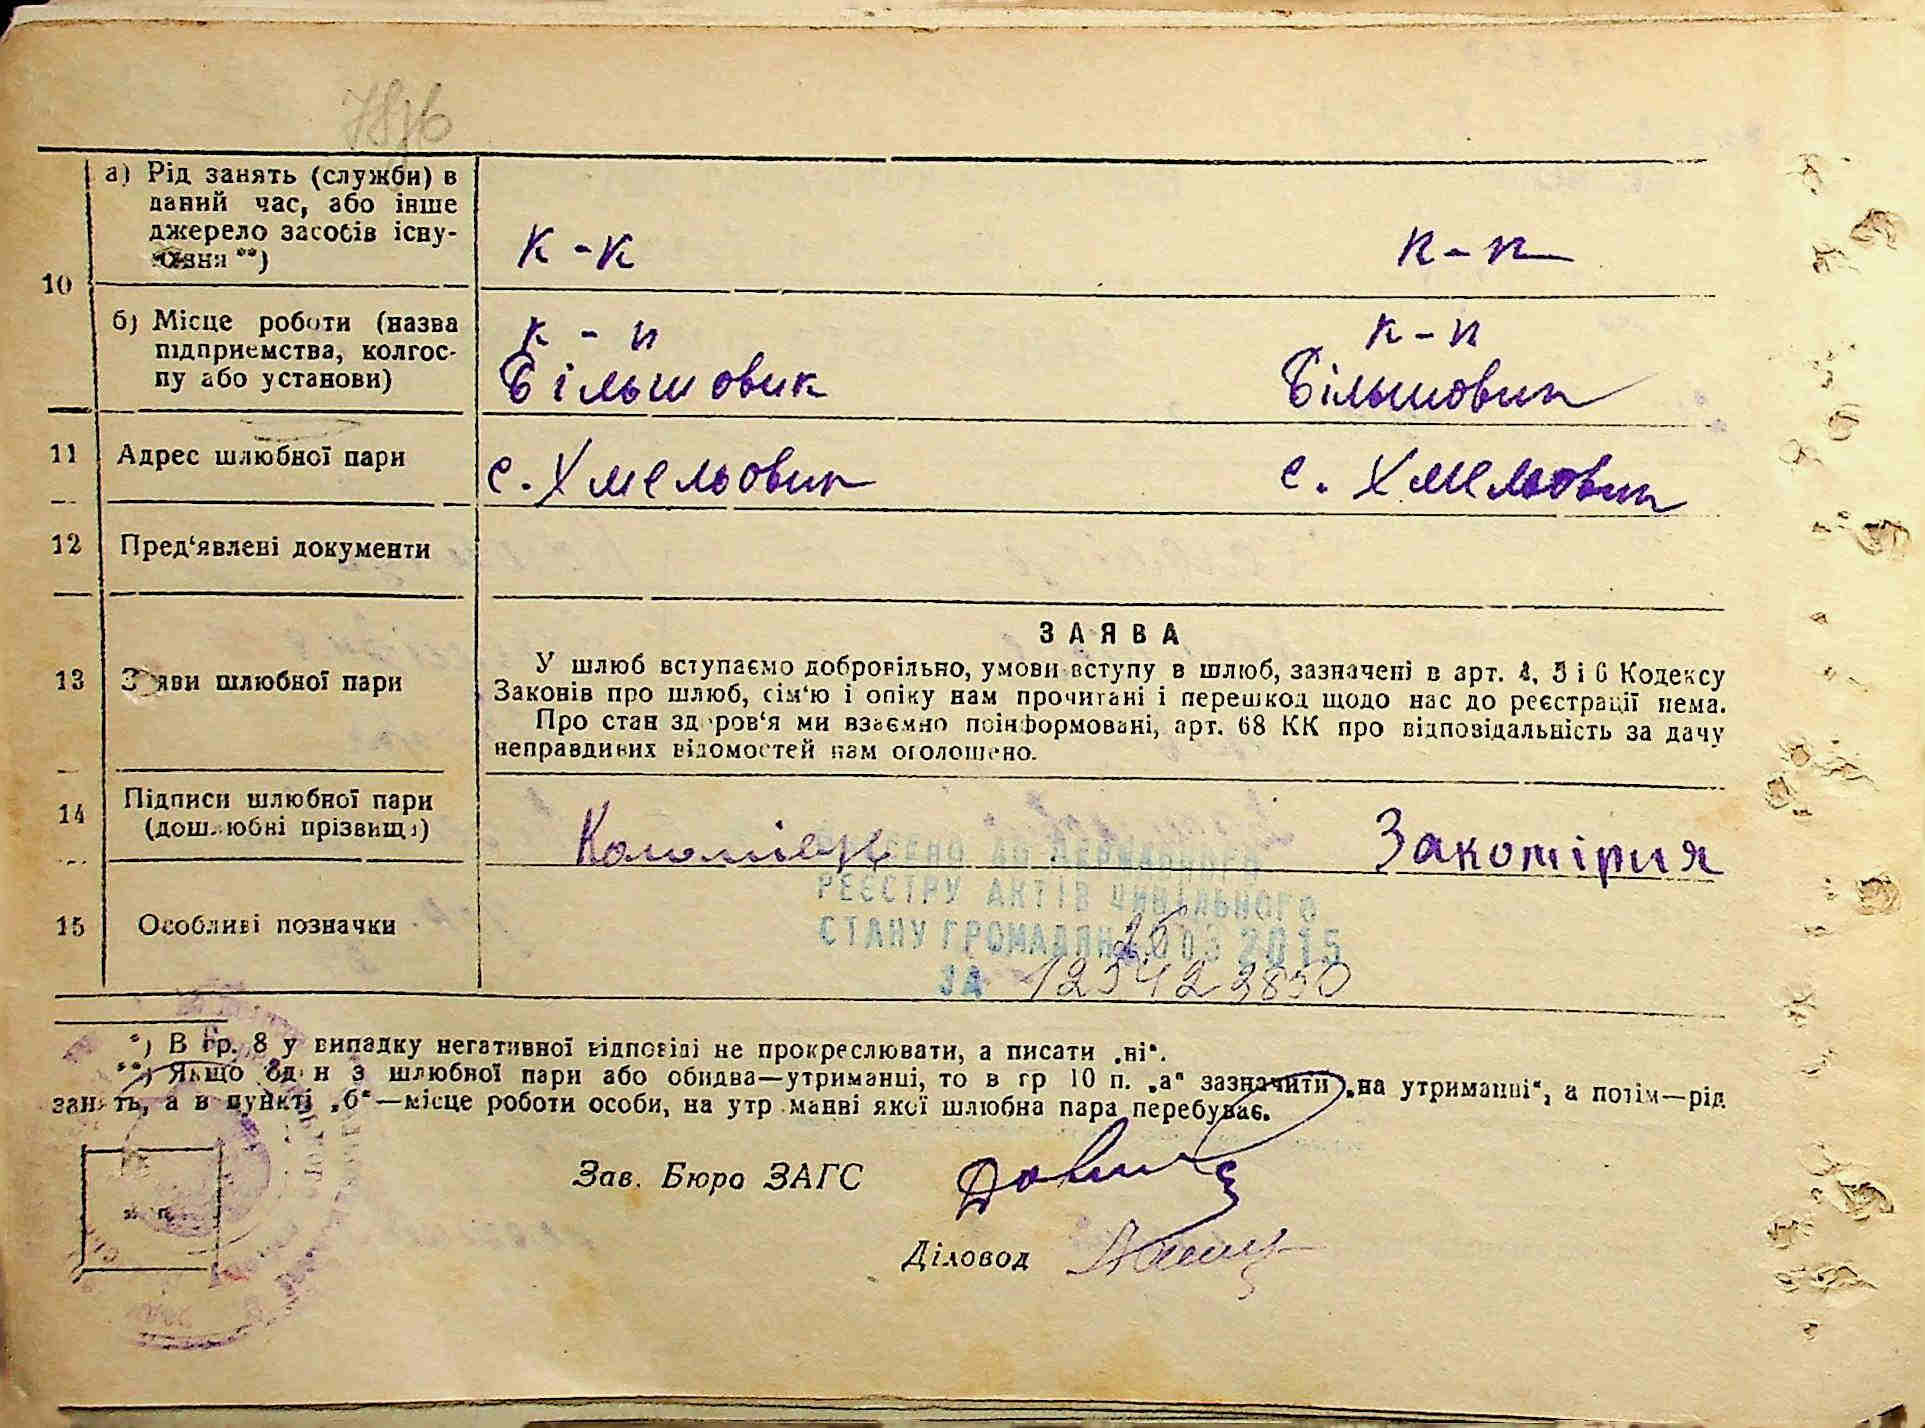 10
а) Рід занять (служби) в
даний час, або інше
джерело засобів існу-
вання **)
к-к
к-к
б) Місце роботи (назва
підприємства, колгос-
пу або установи)
к-п
Більшовик
к-п
Більшовик
11
Адрес шлюбної пари
с. Хмельовик
с. Хмельовик
12
Пред'явлені документи
13
Заяви шлюбної пари
ЗАЯВА
У шлюб вступаємо добровільно, умови вступу в шлюб, зазначені в арт. 4, 5 і 6 Кодексу
Законів про шлюб, сім'ю і опіку нам прочитані і перешкод щодо нас до реєстрації нема.
Про стан здоров'я ми взаємно поінформовані, арт. 68 КК про відповідальність за дачу
неправдивих відомостей нам оголошено.
14
Підписи шлюбної пари
(дошлюбні прізвища)
Коломієць
Закотірия
ДО ДЕРЖАВНОГО
РЕЄСТРУ АКТІВ ЦИВІЛЬНОГО
СТАНУ ГРОМАДЯН 03 2015
ЗА
15
Особливі позначки
*) В гр. 8 у випадку негативної відповіді не прокреслювати, а писати „ні“.
**) Якщо один з шлюбної пари або обидва—утриманці, то в гр 10 п. „а“ зазначити „на утриманні“, а потім—рід
занять, а в пункті „б“—місце роботи особи, на утриманні якої шлюбна пара перебуває.
Зав. Бюро ЗАГС
Діловод